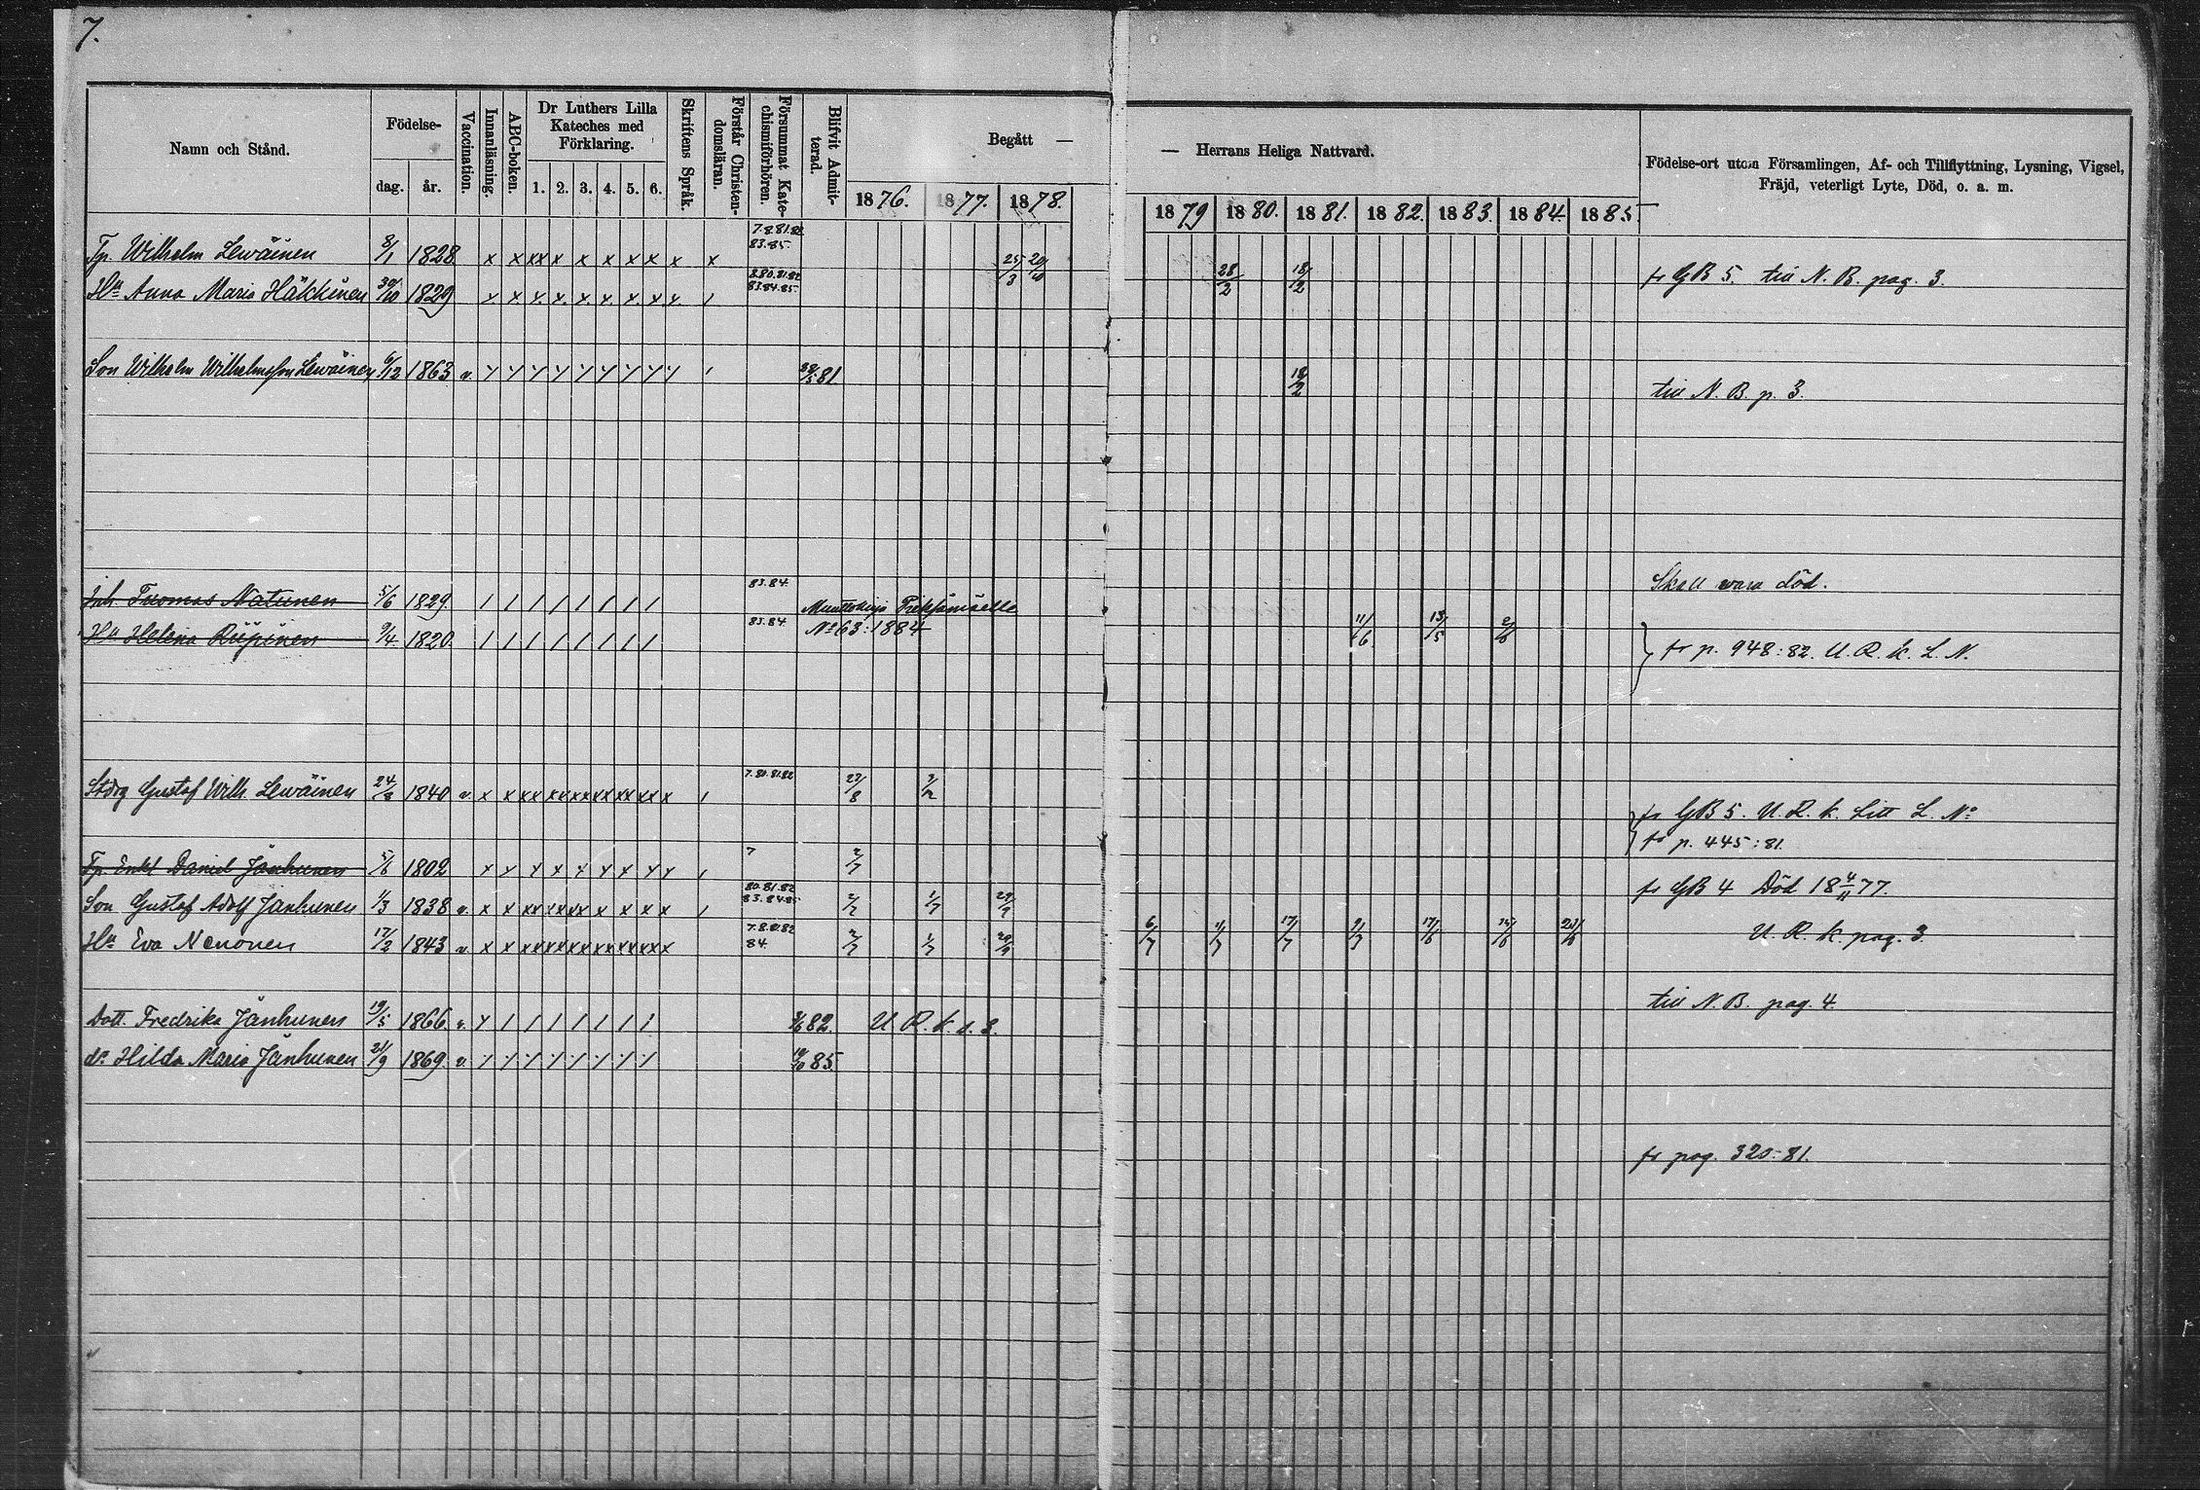 7.
Namn och Stånd. Födelse- dag. år. Vaccination. Innanläsning. ABC-boken. Dr Luthers Lilla Kateches med Förklaring. 1. 2. 3. 4. 5. 6. Skriftens Språk. Förstår Christendomsläran. Försummat Katechismiförhören. Blifvit Admitterad. Begått —
1876. 1877. 1878.
— Herrans Heliga Nattvard.
1879 1880. 1881. 1882. 1883. 1884. 1885
Födelse-ort utom Församlingen, Af- och Tillflyttning, Lysning, Vigsel,
Fräjd, veterligt Lyte, Död, o. a. m.
7.8.81.82
83.85.
Tp. Wilhelm Lewäinen 8/1 1828 x x xx x x x x x x x x 25/3 20/10
8.80.81.82
83.84.85.
Hu Anna Maria Häkkinen 30/10 1829 x x x x x x x x x / 28/2 18/2 fr GB 5. till N. B. pag. 3.
Son Wilhelm Wilhelmsson Lewäinen 6/12 1863 v. 81 18/2 till N. B. p. 3.
83.84.
Inh. Tuomas Natunen 5/6 1829. / / / / / / / / Skall vara död.
83.84
Hu Helena Riipinen 9/4 1820. / / / / / / / / No 63:1884 11/6 13/5 fr p. 948:82. U. R. K. L. N.
7.80.81.82
Gustaf Wilh. Lewäinen 24/8 1840 v. 1/2 fr GB 5. U. R. K. Litt L. No
fr p. 445:81.
7
Tp. Enkl Daniel Jänhunen 5/6 1802 2/7 fr GB 4 Död 18 4/11 77.
80.81.82
83.84.85
Son Gustaf Adolf Jänhunen 1/3 1838 v. 2/7 1/7 29/9 U. R. K. pag. 3.
7.8.81.82
84.
Hu Eva Nenonen 17/2 1843 v 2/7 1/7 29/9 6/7 17/7 17/6
Dott. Fredrika Jänhunen 19/5 1866. v. 82. U. R. K. s. 3. till N. B. pag. 4
do Hilda Maria Jänhunen 21/9 1869. v. 85. fr pag. 320:81.